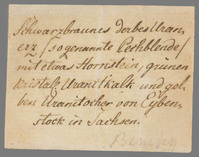 Schwarzbraunes derbes Uran-
erz, / sogenannte Pechblende /
mit etwas Hornstein, grünen
kristall. Uranitkalk und gel-
ben Uranitocker von Eyben-
stock in Sachsen.